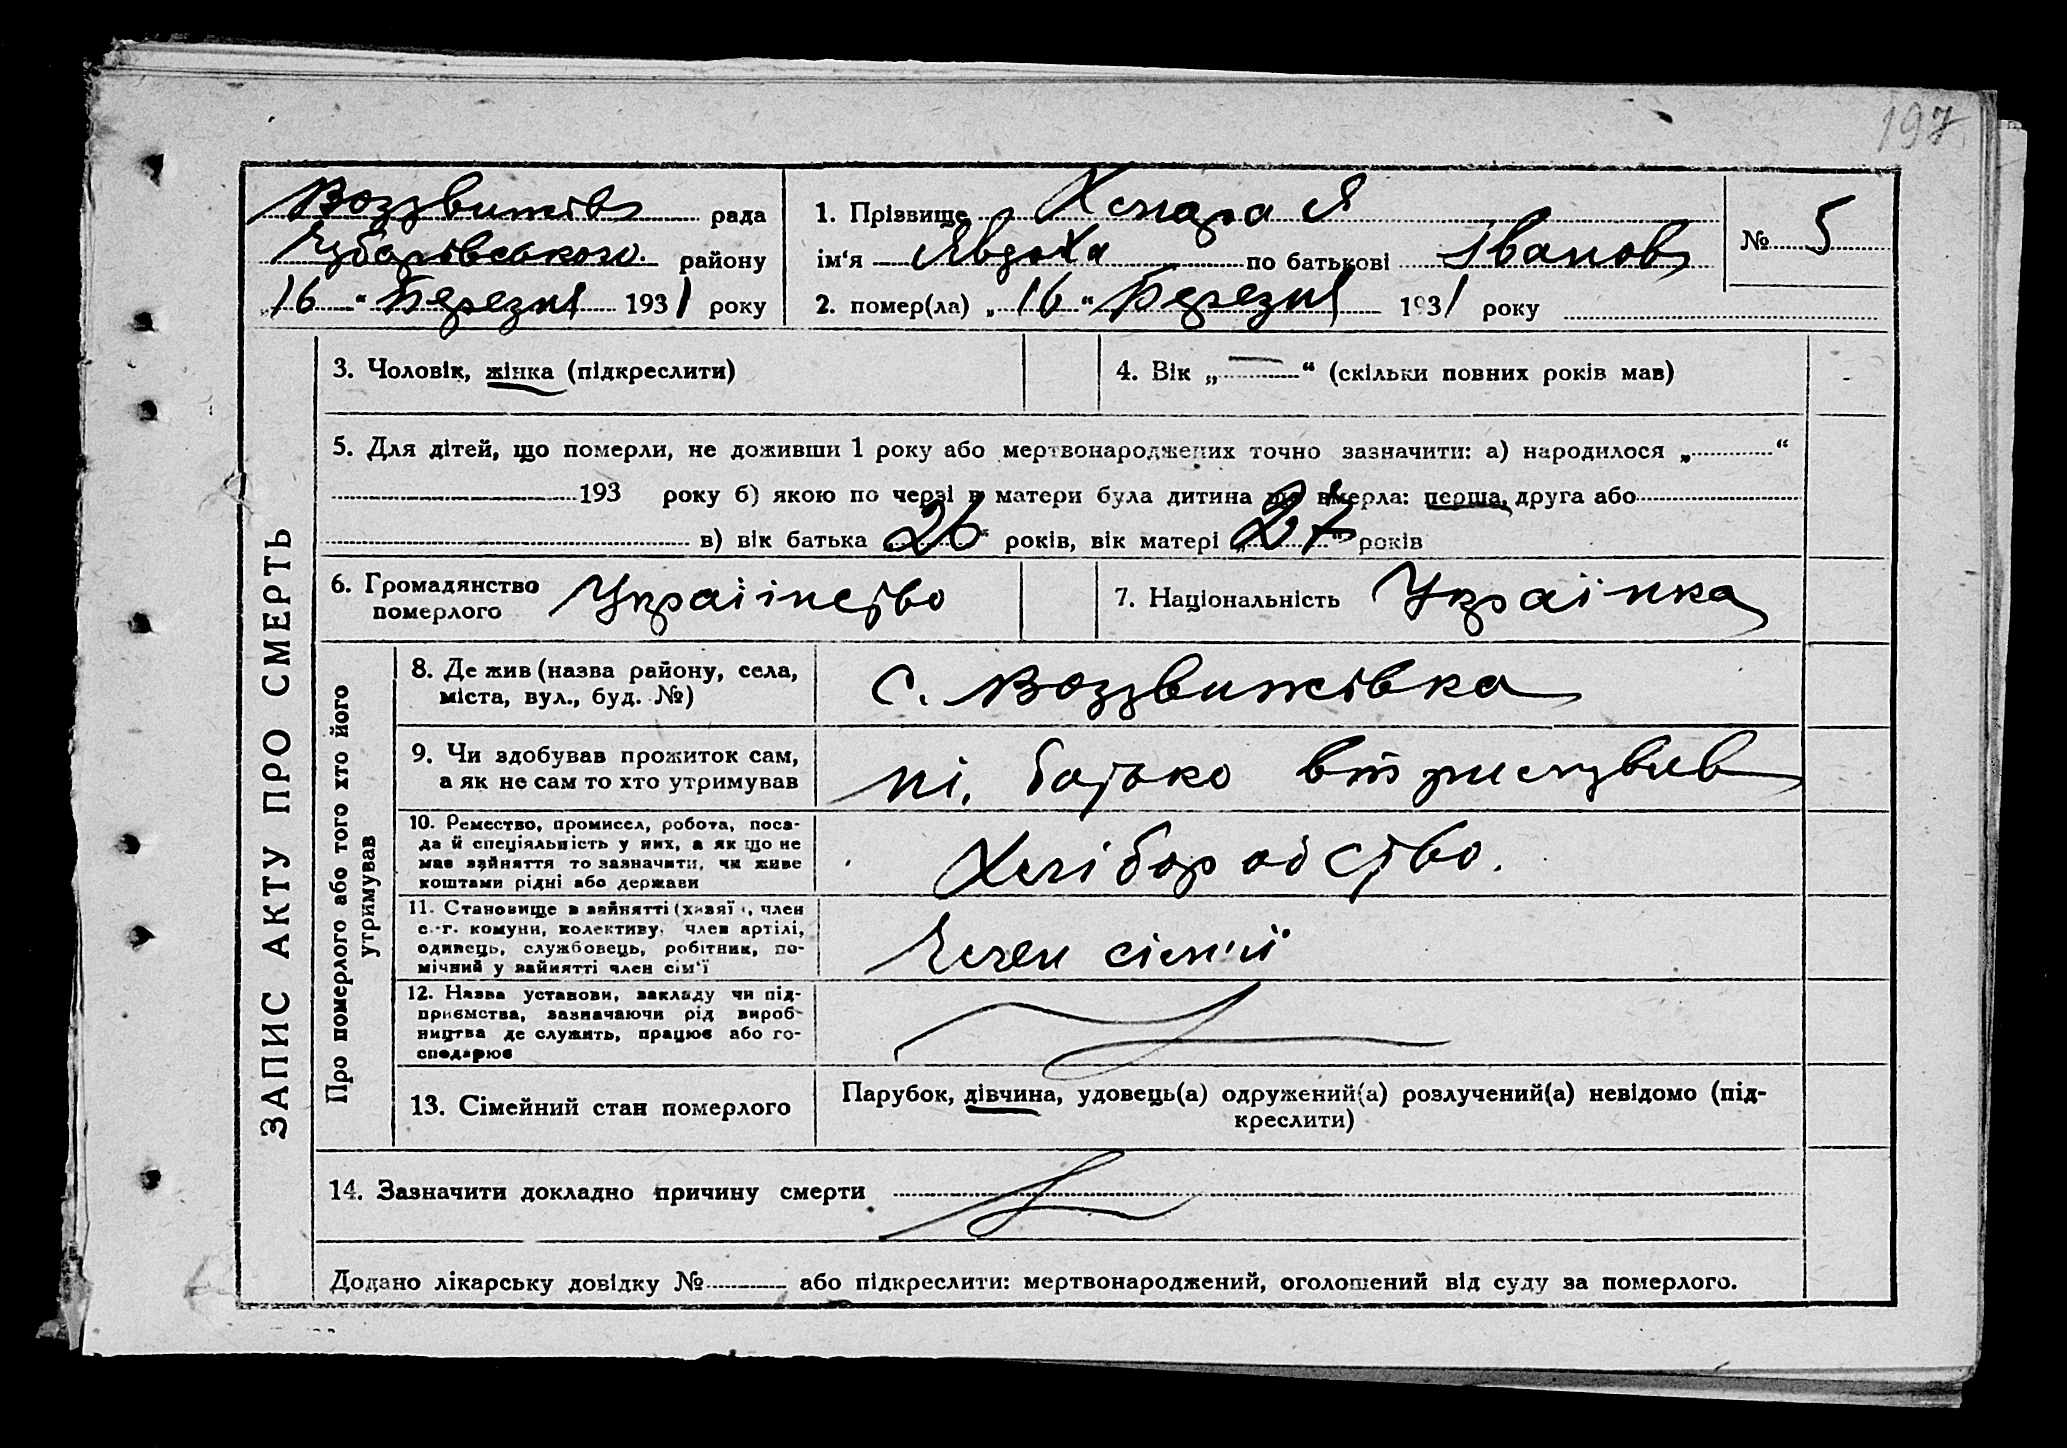 197
Воздвижів рада
Чубарівського району
„16“ Березня 1931 року
1. Прізвище Хмара Я
ім‘я Явдоха по батькові Іванов
2. помер(ла) „16“ Березня 1931 року
№ 5
ЗАПИС АКТУ ПРО СМЕРТЬ
3. Чоловік, жінка (підкреслити)
4. Вік „—“ (скільки повних років мав)
5. Для дітей, що померли, не доживши 1 року або мертвонароджених точно зазначити: а) народилося „ “
193 року б) якою по черзі в матери була дитина що вмерла: перша, друга або
в) вік батька „26“ років, вік матері „27“ років
6. Громадянство
померлого
Украінство
7. Національність Украінка
Про померлого або того хто його
утримував
8. Де жив (назва району, села,
міста, вул., буд. №)
с. Воздвижівка
9. Чи здобував прожиток сам,
а як не сам то хто утримував
ні, батько
10. Ремество, промисел, робота, поса-
да й спеціяльність у них, а як що не
має зайняття то зазначити, чи живе
коштами рідні або держави
Хліборобство.
11. Становище в зайнятті (хазяї, член
с.-г. комуни, колективу, член артілі,
одинець, службовець, робітник, по-
мічний у зайнятті член сім‘ї
Член сім'ї
12. Назва установи, закладу чи під-
приємства, зазначаючи рід вироб-
ництва де служить, працює або го-
сподарює
13. Сімейний стан померлого
Парубок, дівчина, удовець(а) одружений(а) розлучений(а) невідомо (під-
креслити)
14. Зазначити докладно причину смерти
Додано лікарську довідку № або підкреслити: мертвонароджений, оголошений від суду за померлого.